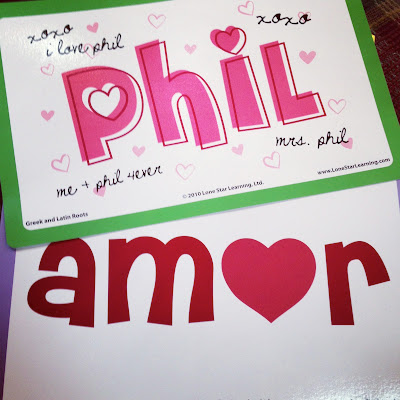 xoxo
xoxo
i love phil
phiL
mrs. phil
me + phil 4ever
www.LoneStarLearning.com
© 2010 Lone Star Learning, Ltd.
Greek and Latin Roots
amor